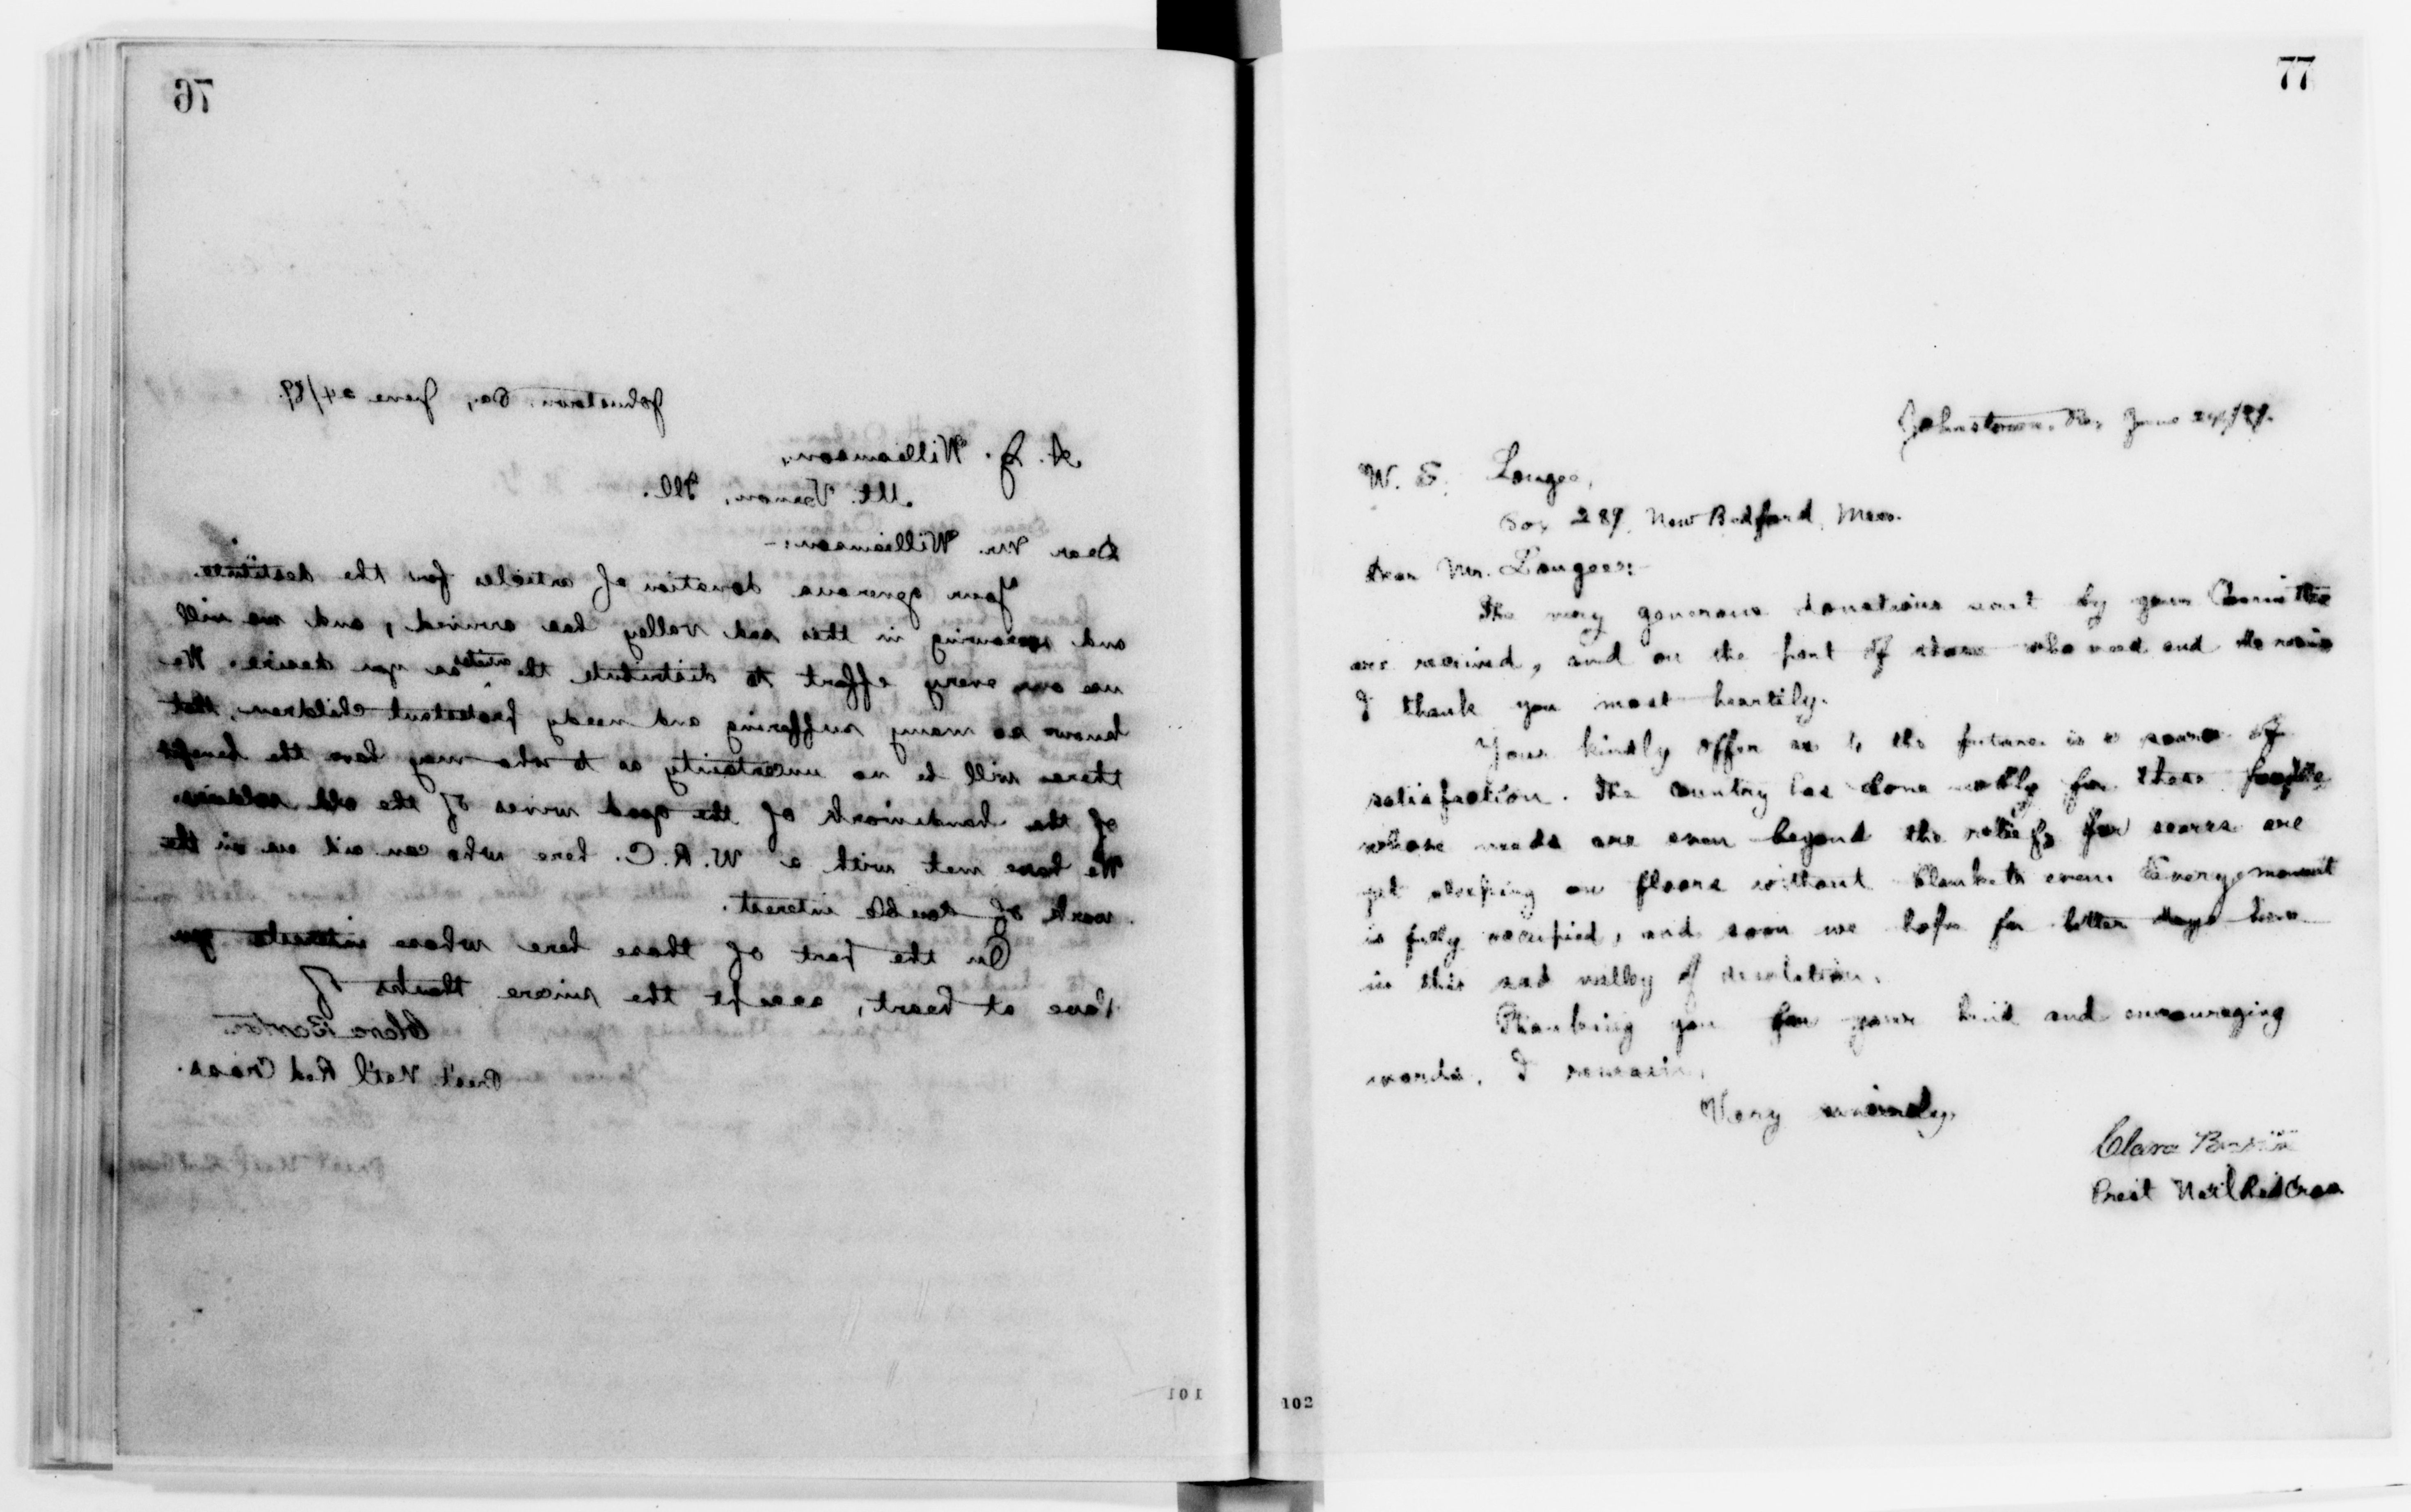 76
Johnstown, Pa., June 24/89.
A. J. Williamson,
Mt. Vernon, Ill.
Dear Mr. Williamson:-
Your generous donation of articles for the destitute
and sorrowing in this sad valley has arrived, and we will
use our every effort to distribute the articles as you desire. We
know so many suffering and needy protestant children, that
there will be no uncertainty as to who may have the benefit
of the handiwork of the good wives of the old soldiers.
We have met with a W. R. C. here who can aid us in the
work of double interest.
On the part of those here whose interests you
have at heart, accept the sincere thanks of
Clara Barton.
Prest. Nat'l Red Cross.
101
77
Johnstown, Pa., June 24/89.
W. S. Lougee,
Box 289, New Bedford, Mass.
Dear Mr. Lougee:-
The very generous donations sent by your Committee
are received, and on the part of those who need and
I thank you most heartily.
Your kindly offer as to the future is a source of
satisfaction. The country has done nobly for these people
whose needs are even beyond the relief, for scores are
yet sleeping on floors without blankets even. Every moment
is fully occupied, and soon we hope for better days here
in this sad valley of desolation.
Thanking you for your kind and encouraging
words, I remain,
Very sincerely,
Clara Barton
Prest Nat'l Red Cross
102